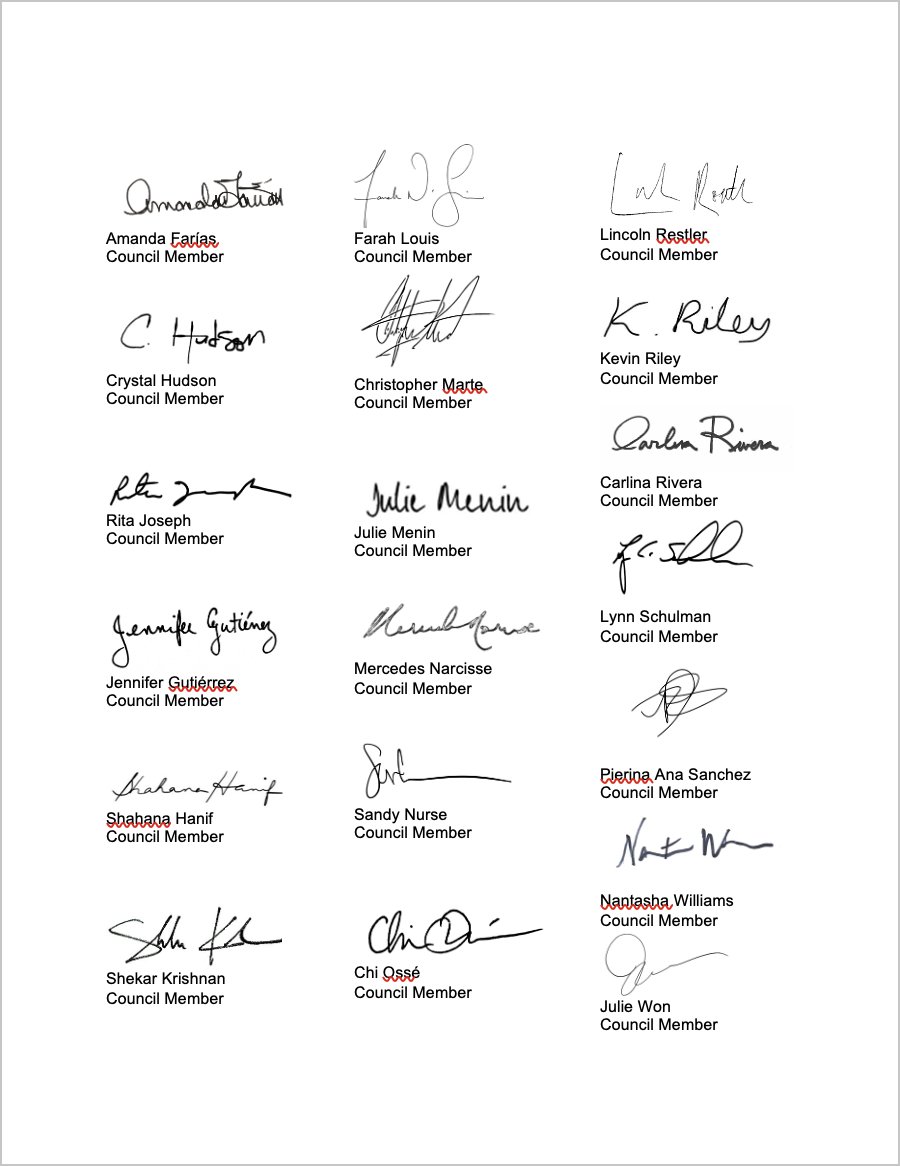 Amanda Farías
Amanda Farías
Council Member
C. Hudson
Crystal Hudson
Council Member
Rita Joseph
Council Member
Jennifer Gutiérrez
Jennifer Gutiérrez
Council Member
Shahana Hanif
Shahana Hanif
Council Member
Shekar Krishnan
Council Member
Farah Louis
Council Member
Christopher Marte
Council Member
Julie Menin
Julie Menin
Council Member
Mercedes Narcisse
Council Member
Sandy Nurse
Council Member
Chi Ossé
Council Member
Lincoln Restler
Council Member
K. Riley
Kevin Riley
Council Member
Carlina Rivera
Carlina Rivera
Council Member
Lynn Schulman
Council Member
Pierina Ana Sanchez
Council Member
Nantasha Williams
Council Member
Julie Won
Council Member